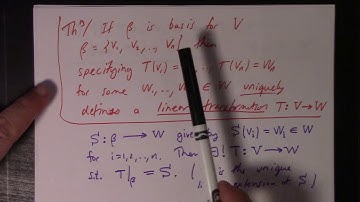 Thᵐ/ If β is basis for V
β = {v₁, v₂, .., vₙ} then
specifying T(v₁) = , .. T(vₙ) = wₙ
for some w₁, .. wₙ ∈ W uniquely
defines a linear transformation T: V → W
S: β → W given by S(vᵢ) = wᵢ ∈ W
for i=1,2,..,n. Then ∃! T: V → W
s.t. T|β = S. ( is the unique
extension of S )